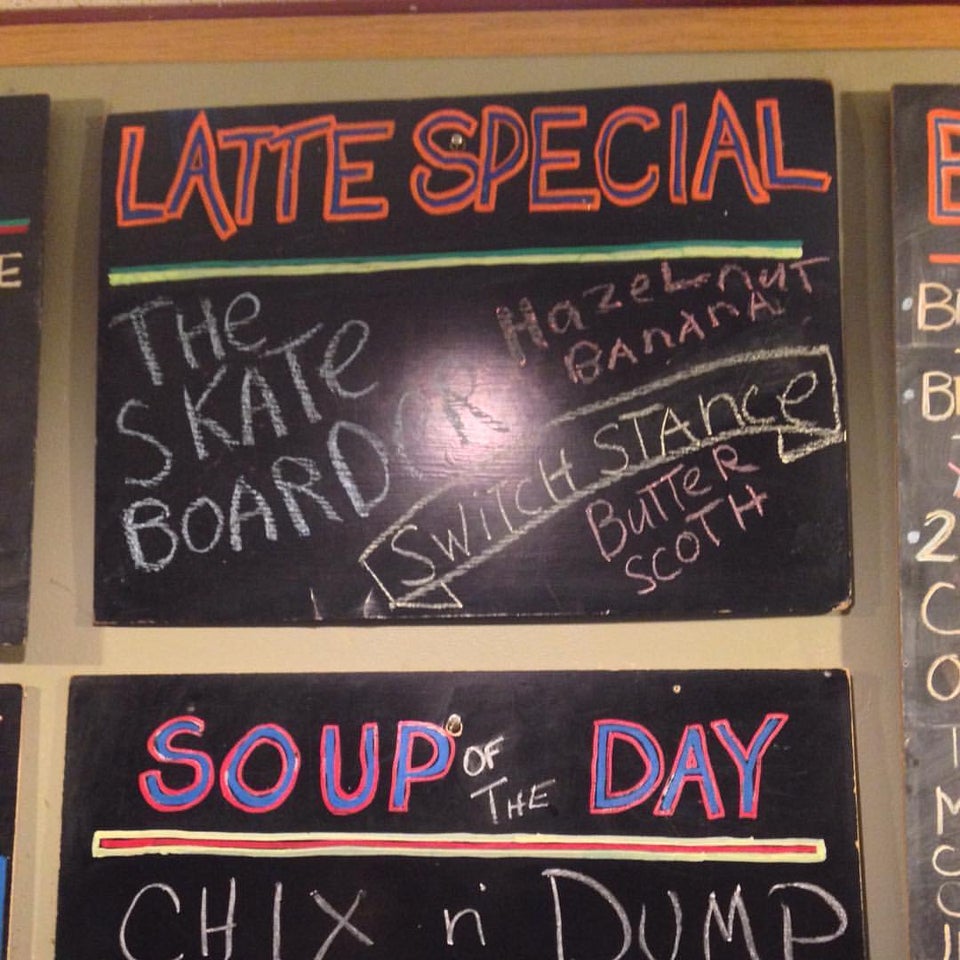 LATTE SPECIAL
THe
SKATe
BOARD OR
HazeLnuT
BAnAnA
SWiTCH STAnce
BuTTeR
SCOTH
SOUP OF THE DAY
CHIX n' DUMP
E
B
B
2
C
O
T
M
C